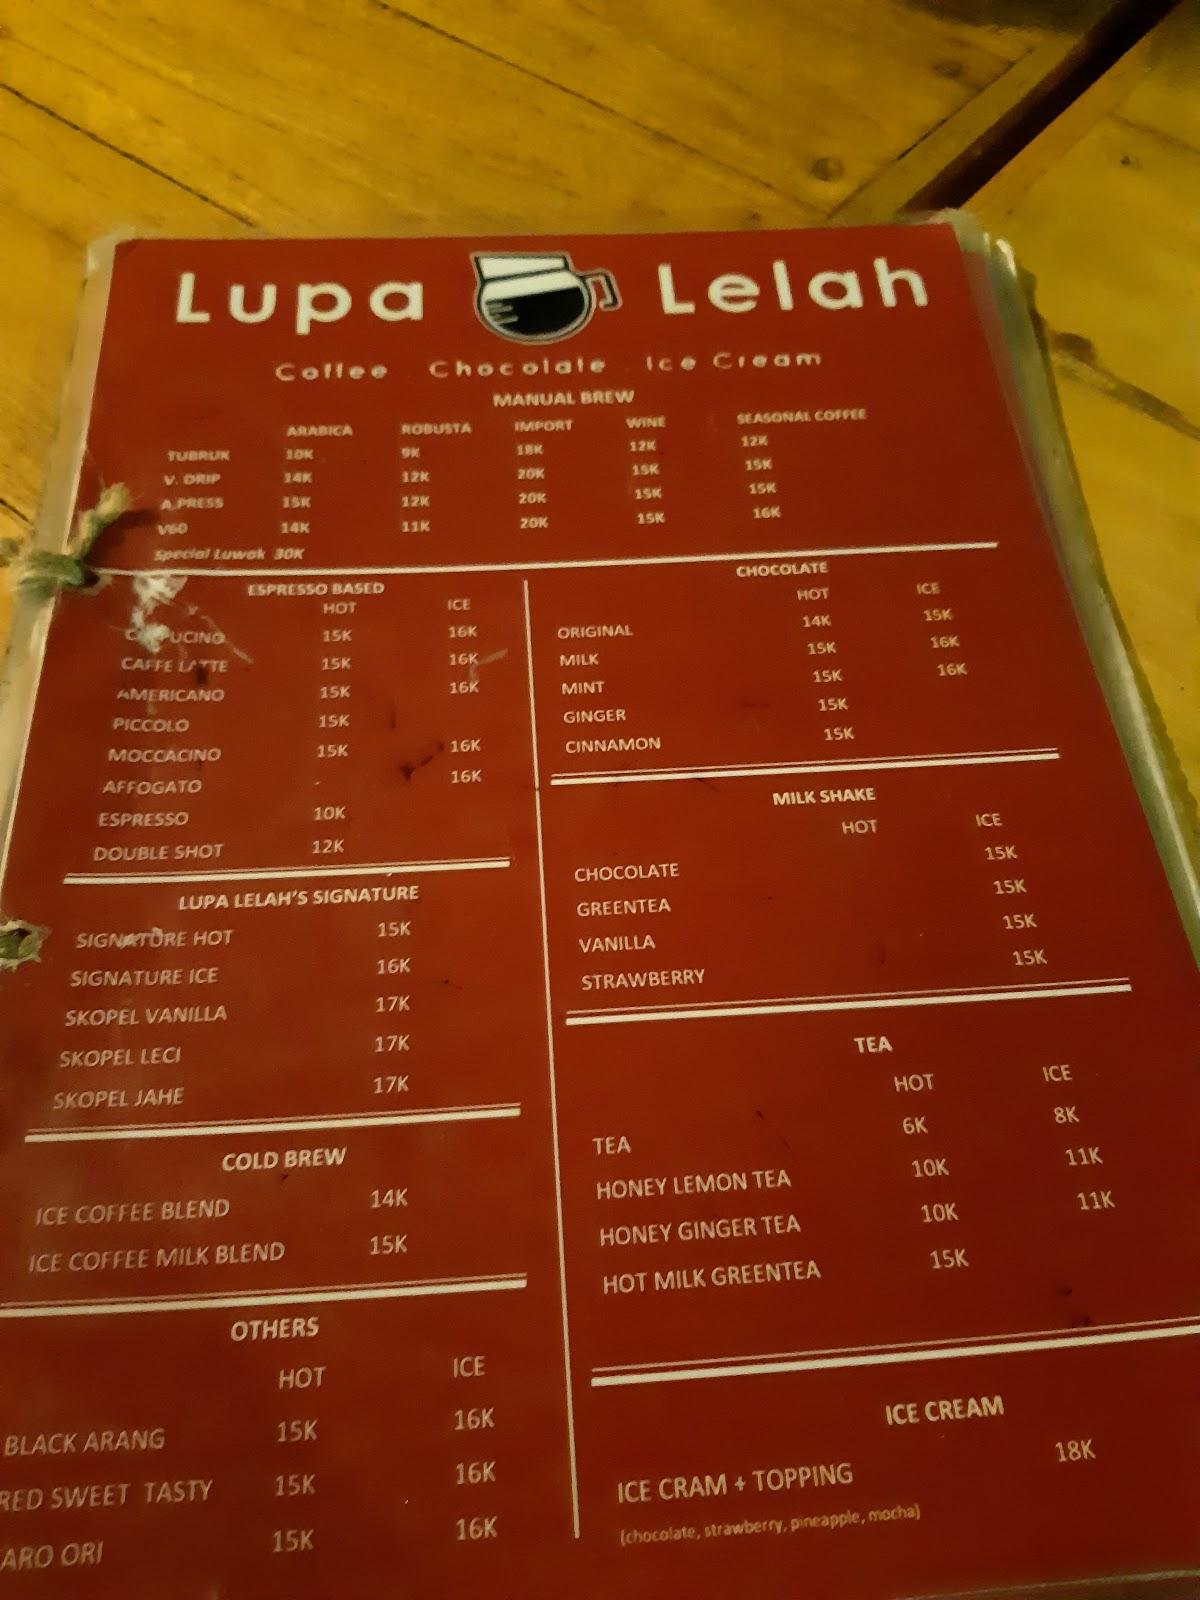 Lupa Lelah
Coffee Chocolate Ice Cream
MANUAL BREW
ARABICA ROBUSTA IMPORT WINE SEASONAL COFFEE
TUBRUK 10K 9K 18K 12K 12K
V. DRIP 14K 12K 20K 15K 15K
A.PRESS 15K 12K 20K 15K 15K
V60 14K 11K 20K 15K 16K
Special Luwak 30K
ESPRESSO BASED
HOT ICE
CAPPUCINO 15K 16K
CAFFE LATTE 15K 16K
AMERICANO 15K 16K
PICCOLO 15K
MOCCACINO 15K 16K
AFFOGATO - 16K
ESPRESSO 10K
DOUBLE SHOT 12K
LUPA LELAH'S SIGNATURE
SIGNATURE HOT 15K
SIGNATURE ICE 16K
SKOPEL VANILLA 17K
SKOPEL LECI 17K
SKOPEL JAHE 17K
COLD BREW
ICE COFFEE BLEND 14K
ICE COFFEE MILK BLEND 15K
OTHERS
HOT ICE
BLACK ARANG 15K 16K
RED SWEET TASTY 15K 16K
ARO ORI 15K 16K
CHOCOLATE
HOT ICE
ORIGINAL 14K 15K
MILK 15K 16K
MINT 15K 16K
GINGER 15K
CINNAMON 15K
MILK SHAKE
HOT ICE
CHOCOLATE 15K
GREENTEA 15K
VANILLA 15K
STRAWBERRY 15K
TEA
HOT ICE
TEA 6K 8K
HONEY LEMON TEA 10K 11K
HONEY GINGER TEA 10K 11K
HOT MILK GREENTEA 15K
ICE CREAM
ICE CRAM + TOPPING 18K
(chocolate, strawberry, pineapple, mocha)